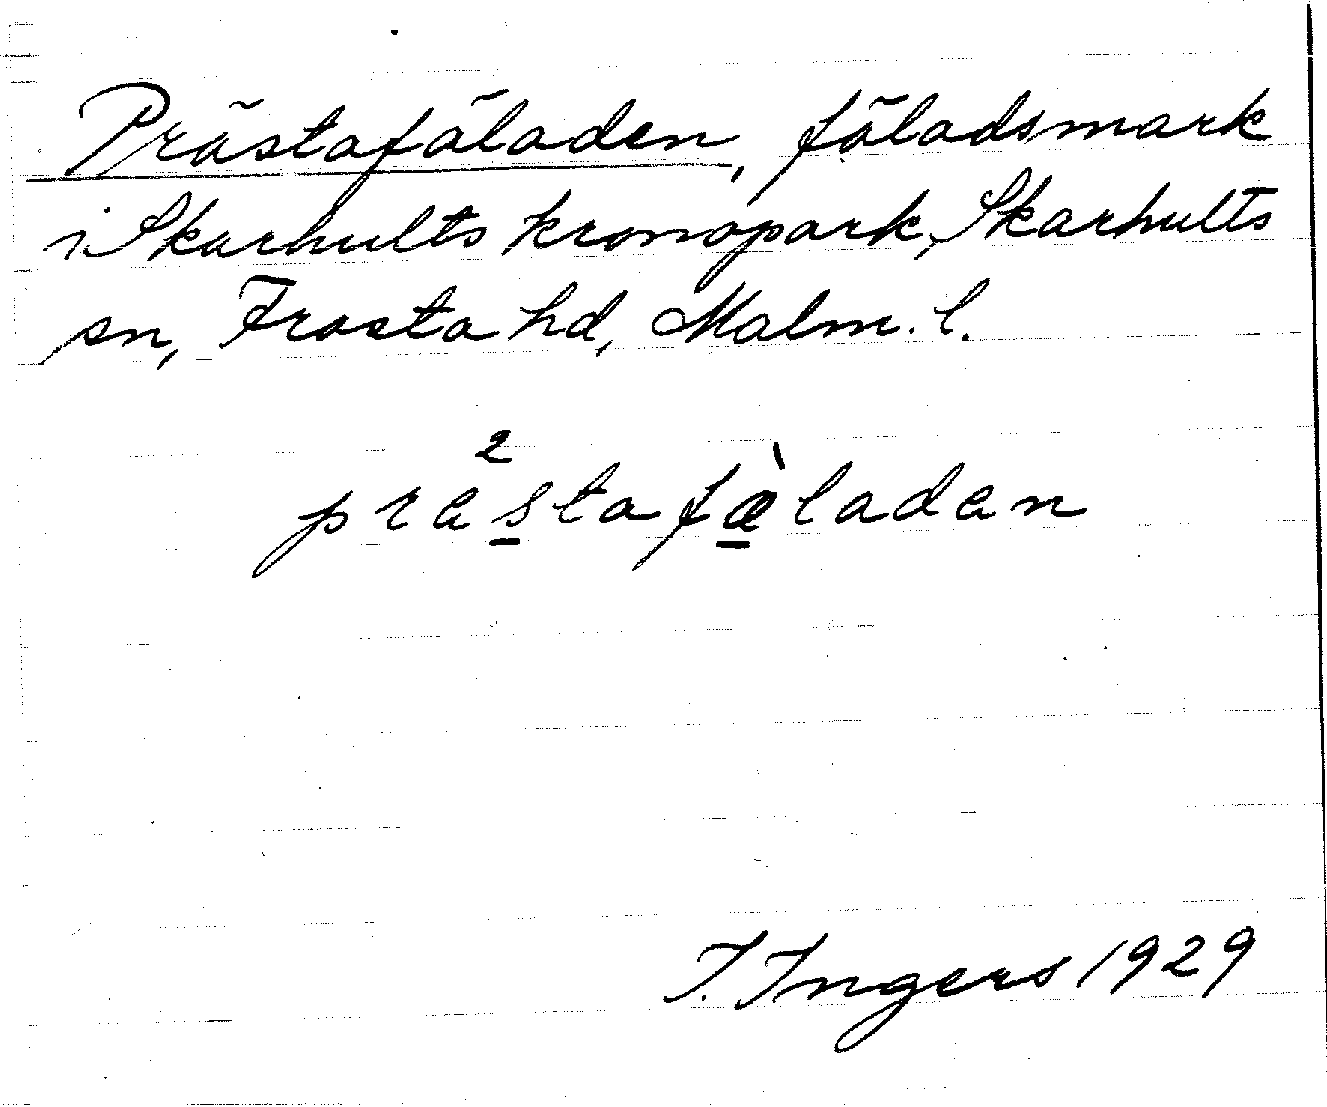 Prästafäladen, fäladsmark
i Skarhults kronopark, Skarhults
sn, Frosta hd, Malm. l.
2
prestafæ̀ladan
I. Ingers 1929